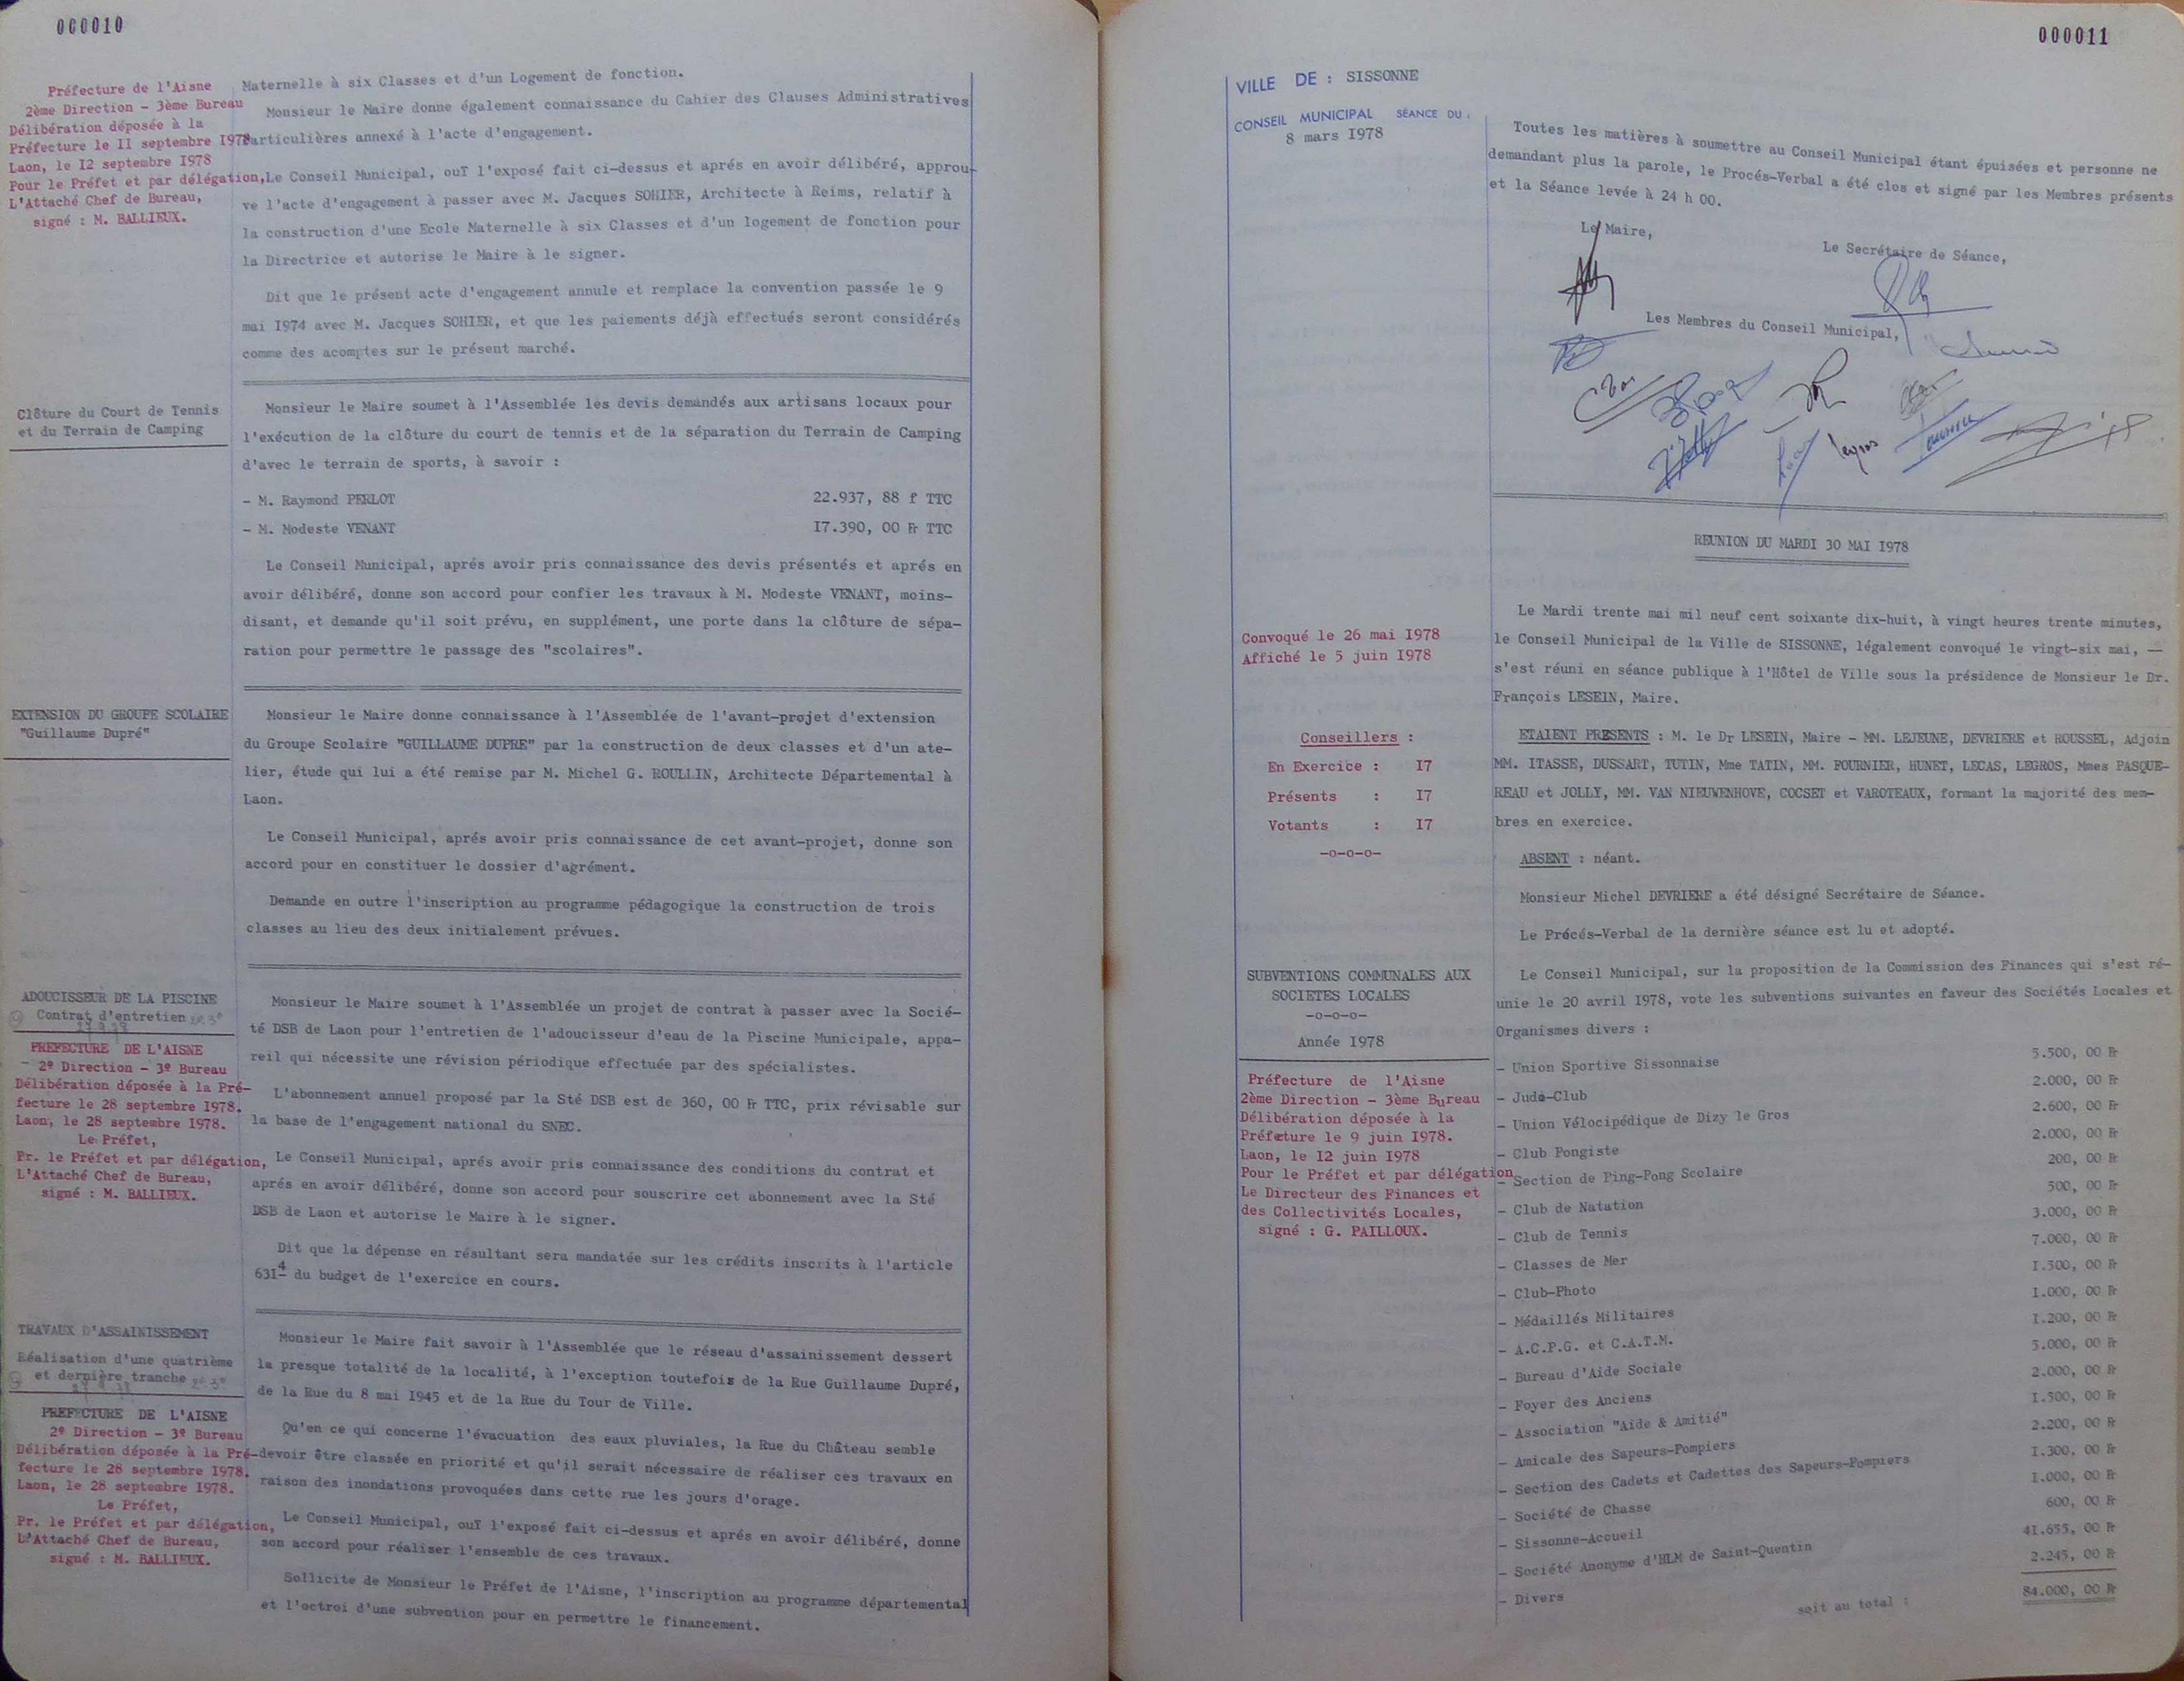 000010
Préfecture de l'Aisne
2ème Direction - 3ème Bureau
Délibération déposée à la
Préfecture le II septembre I978
Laon, le I2 septembre I978
Pour le Préfet et par délégation,
L'Attaché Chef de Bureau,
signé : M. BALLIEUX.
Maternelle à six Classes et d'un Logement de fonction.
Monsieur le Maire donne également connaissance du Cahier des Clauses Administratives
Particulières annexé à l'acte d'engagement.
Le Conseil Municipal, ouï l'exposé fait ci-dessus et aprés en avoir délibéré, approu-
ve l'acte d'engagement à passer avec M. Jacques SOHIER, Architecte à Reims, relatif à
la construction d'une Ecole Maternelle à six Classes et d'un logement de fonction pour
la Directrice et autorise le Maire à le signer.
Dit que le présent acte d'engagement annule et remplace la convention passée le 9
mai I974 avec M. Jacques SOHIER, et que les paiements déjà effectués seront considérés
comme des acomptes sur le présent marché.
Clôture du Court de Tennis
et du Terrain de Camping
Monsieur le Maire soumet à l'Assemblée les devis demandés aux artisans locaux pour
l'exécution de la clôture du court de tennis et de la séparation du Terrain de Camping
d'avec le terrain de sports, à savoir :
- M. Raymond PERLOT 22.937, 88 f TTC
- M. Modeste VENANT I7.390, 00 Fr TTC
Le Conseil Municipal, aprés avoir pris connaissance des devis présentés et aprés en
avoir délibéré, donne son accord pour confier les travaux à M. Modeste VENANT, moins-
disant, et demande qu'il soit prévu, en supplément, une porte dans la clôture de sépa-
ration pour permettre le passage des "scolaires".
EXTENSION DU GROUPE SCOLAIRE
"Guillaume Dupré"
Monsieur le Maire donne connaissance à l'Assemblée de l'avant-projet d'extension
du Groupe Scolaire "GUILLAUME DUPRE" par la construction de deux classes et d'un ate-
lier, étude qui lui a été remise par M. Michel G. ROULLIN, Architecte Départemental à
Laon.
Le Conseil Municipal, aprés avoir pris connaissance de cet avant-projet, donne son
accord pour en constituer le dossier d'agrément.
Demande en outre l'inscription au programme pédagogique la construction de trois
classes au lieu des deux initialement prévues.
ADOUCISSEUR DE LA PISCINE
Contrat d'entretien
PREFECTURE DE L'AISNE
- 2º Direction - 3º Bureau
Délibération déposée à la Pré-
fecture le 28 septembre I978.
Laon, le 28 septembre I978.
Le Préfet,
Pr. le Préfet et par délégation,
L'Attaché Chef de Bureau,
signé : M. BALLIEUX.
Monsieur le Maire soumet à l'Assemblée un projet de contrat à passer avec la Socié-
té DSB de Laon pour l'entretien de l'adoucisseur d'eau de la Piscine Municipale, appa-
reil qui nécessite une révision périodique effectuée par des spécialistes.
L'abonnement annuel proposé par la Sté DSB est de 360, 00 Fr TTC, prix révisable sur
la base de l'engagement national du SNEC.
Le Conseil Municipal, aprés avoir pris connaissance des conditions du contrat et
aprés en avoir délibéré, donne son accord pour souscrire cet abonnement avec la Sté
DSB de Laon et autorise le Maire à le signer.
Dit que la dépense en résultant sera mandatée sur les crédits inscrits à l'article
631 4 du budget de l'exercice en cours.
TRAVAUX D'ASSAINISSEMENT
Réalisation d'une quatrième
et dernière tranche
PREFECTURE DE L'AISNE
2º Direction - 3º Bureau
Délibération déposée à la Pré-
fecture le 28 septembre I978.
Laon, le 28 septembre I978.
Le Préfet,
Pr. le Préfet et par délégation,
L'Attaché Chef de Bureau,
signé : M. BALLIEUX.
Monsieur le Maire fait savoir à l'Assemblée que le réseau d'assainissement dessert
la presque totalité de la localité, à l'exception toutefois de la Rue Guillaume Dupré,
de la Rue du 8 mai I945 et de la Rue du Tour de Ville.
Qu'en ce qui concerne l'évacuation des eaux pluviales, la Rue du Château semble
devoir être classée en priorité et qu'il serait nécessaire de réaliser ces travaux en
raison des inondations provoquées dans cette rue les jours d'orage.
Le Conseil Municipal, ouï l'exposé fait ci-dessus et aprés en avoir délibéré, donne
son accord pour réaliser l'ensemble de ces travaux.
Sollicite de Monsieur le Préfet de l'Aisne, l'inscription au programme départemental
et l'octroi d'une subvention pour en permettre le financement.
000011
VILLE DE : SISSONNE
CONSEIL MUNICIPAL SÉANCE DU :
8 mars I978
Toutes les matières à soumettre au Conseil Municipal étant épuisées et personne ne
demandant plus la parole, le Procés-Verbal a été clos et signé par les Membres présents
et la Séance levée à 24 h 00.
Le Maire,
Le Secrétaire de Séance,
Les Membres du Conseil Municipal,
legros
REUNION DU MARDI 30 MAI I978
Convoqué le 26 mai I978
Affiché le 5 juin I978
Le Mardi trente mai mil neuf cent soixante dix-huit, à vingt heures trente minutes,
le Conseil Municipal de la Ville de SISSONNE, légalement convoqué le vingt-six mai, —
s'est réuni en séance publique à l'Hôtel de Ville sous la présidence de Monsieur le Dr.
François LESEIN, Maire.
Conseillers :
En Exercice : I7
Présents : I7
Votants : I7
-o-o-o-
ETAIENT PRESENTS : M. le Dr LESEIN, Maire - MM. LEJEUNE, DEVRIERE et ROUSSEL, Adjoin
MM. ITASSE, DUSSART, TUTIN, Mme TATIN, MM. FOURNIER, HUNET, LECAS, LEGROS, Mmes PASQUE-
REAU et JOLLY, MM. VAN NIEUWENHOVE, COCSET et VAROTEAUX, formant la majorité des mem-
bres en exercice.
ABSENT : néant.
Monsieur Michel DEVRIERE a été désigné Secrétaire de Séance.
Le Procés-Verbal de la dernière séance est lu et adopté.
SUBVENTIONS COMMUNALES AUX
SOCIETES LOCALES
-o-o-o-
Année I978
Préfecture de l'Aisne
2ème Direction - 3ème Bureau
Délibération déposée à la
Préfecture le 9 juin I978.
Laon, le I2 juin I978
Pour le Préfet et par délégation
Le Directeur des Finances et
des Collectivités Locales,
signé : G. PAILLOUX.
Le Conseil Municipal, sur la proposition de la Commission des Finances qui s'est ré-
unie le 20 avril I978, vote les subventions suivantes en faveur des Sociétés Locales et
Organismes divers :
- Union Sportive Sissonnaise 5.500, 00 Fr
- Judo-Club 2.000, 00 Fr
- Union Vélocipédique de Dizy le Gros 2.600, 00 Fr
- Club Pongiste 2.000, 00 Fr
- Section de Ping-Pong Scolaire 200, 00 Fr
- Club de Natation 500, 00 Fr
- Club de Tennis 3.000, 00 Fr
- Classes de Mer 7.000, 00 Fr
- Club-Photo I.500, 00 Fr
- Médaillés Militaires I.000, 00 Fr
- A.C.P.G. et C.A.T.M. I.200, 00 Fr
- Bureau d'Aide Sociale 5.000, 00 Fr
- Foyer des Anciens 2.000, 00 Fr
- Association "Aide & Amitié" I.500, 00 Fr
- Amicale des Sapeurs-Pompiers 2.200, 00 Fr
- Section des Cadets et Cadettes des Sapeurs-Pompiers I.300, 00 Fr
- Société de Chasse I.000, 00 Fr
- Sissonne-Accueil 600, 00 Fr
- Société Anonyme d'HLM de Saint-Quentin 41.655, 00 Fr
- Divers 2.245, 00 Fr
soit au total : 84.000, 00 Fr